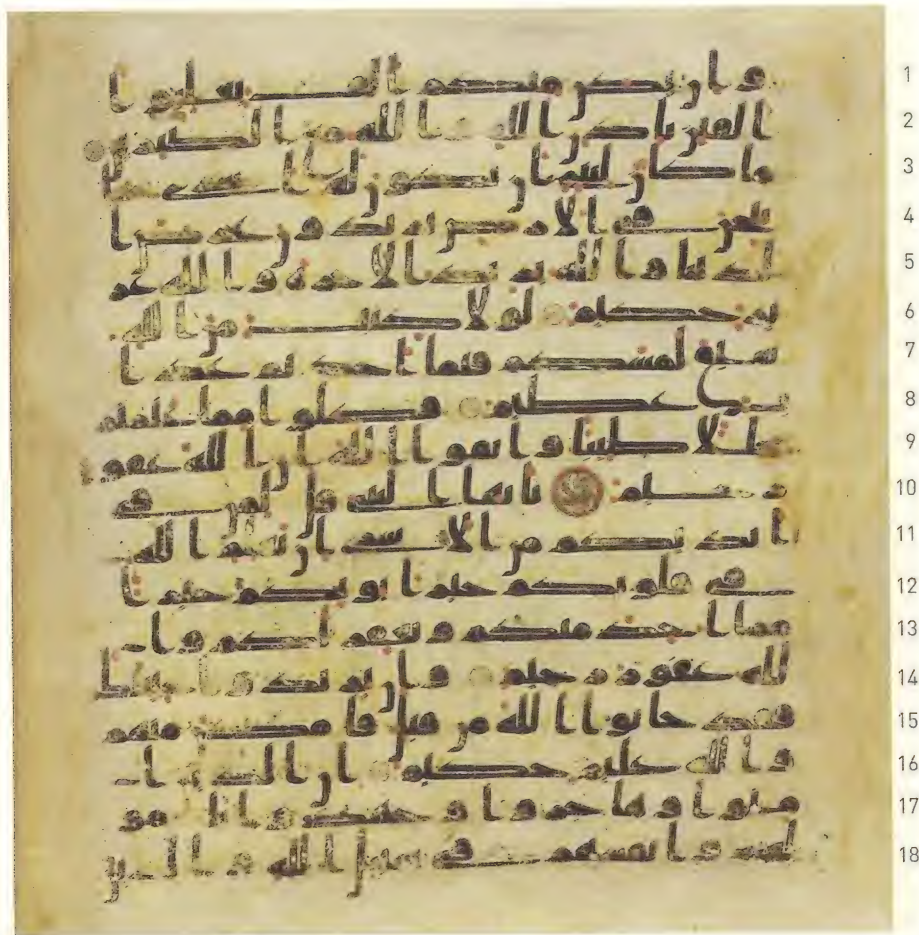 وان يكن منكم الف يغلبوا ا 1
لفين باذن الله والله مع الصبرين 2
ما كان لنبى ان يكون له اسرى حتى 3
يثخن فى الارض تريدون عرض ا 4
لدنيا والله يريد الاخرة والله عز 5
يز حكيم لولا كتب من الله 6
سبق لمسكم فيما اخذتم عذا 7
ب عظيم فكلوا مما غنمتم 8
حللا طيبا واتقوا الله ان الله غفو 9
ر رحيم يايها النبى قل لمن فى 10
ايديكم من الاسرى ان يعلم الله 11
فى قلوبكم خيرا يوتكم خيرا 12
مما اخذ منكم ويغفر لكم وا 13
لله غفور رحيم وان يريدوا خيانتك 14
فقد خانوا الله من قبل فامكن منهم 15
والله عليم حكيم ان الذين ا 16
منوا وهاجروا وجهدوا باموا 17
لهم وانفسهم فى سبيل الله والذين 18